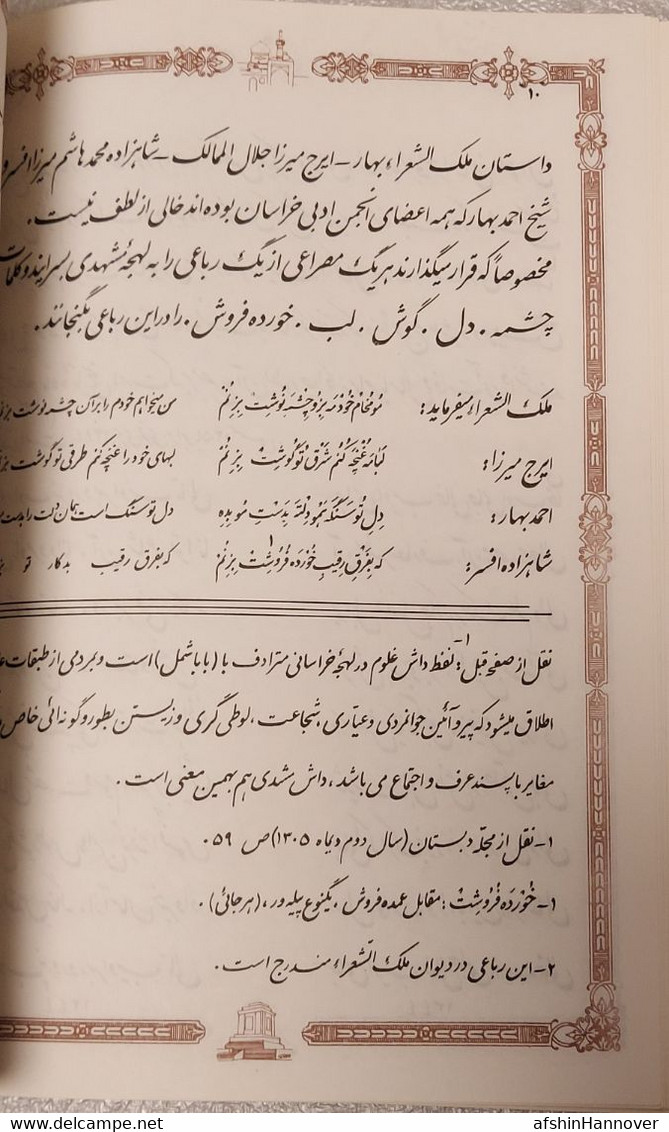 ۱۰
داستان ملک الشعراء بهار – ایرج میرزا جلال الممالک – شاهزاده محمد هاشم میرزا افسر و
شیخ احمد بهار که همه اعضای انجمن ادبی خراسان بوده اند خالی از لطف نیست.
مخصوصاً که قرار میگذارند هر یک مصراعی از یک رباعی را به لهجهٔ مشهدی بسرایند و کلمات
چشمه . دل . گوش . لب . خورده فروش . را در این رباعی بگنجانند.
ملک الشعراء میفرماید: مو مُخام خُودمَه بِرُو چِشمَه نُوشِت بِزِنُم من میخواهم خودم را بر آن چشمه نوشت
ایرج میرزا: لَبامَه غُنچَه کُنُم شَرَق تو گوشِت بِزِنُم لبهای خود را غنچه کنم طرقی تو گوشت
احمد بهار: دِلِ تو سَنگَه هَمو دِلتَه بِدَستِ مو بِدِه دل تو سنگ است همان دلت را بدست
شاهزاده افسر: که بِفَرقِ رِقیبِ خُوردَه فُروشِت ۱ بِزِنُم که بفرق رقیب بدکار تو
نقل از صفحه قبل: ۱– لفظ داش غلوم در لهجه خراسانی مترادف با (بابا شمل) است و بمردمی از طبقات
اطلاق میشود که پیرو آئین جوانمردی و عیاری، شجاعت، لوطی گری و زیستن بطور و گونه ائی خاص
مغایر با پسند عرف و اجتماع می باشد، داش مشدی هم بهمین معنی است.
۱– نقل از مجلّه دبستان (سال دوم دیماه ۱۳۰۵) ص ۵۹.
۱– خُوردَه فُروشِتْ: مقابل عمده فروش، یکنوع پیله ور، (هرجائی).
۲– این رباعی در دیوان ملک الشّعراء مندرج است.
delcampe.net
afshinHannover